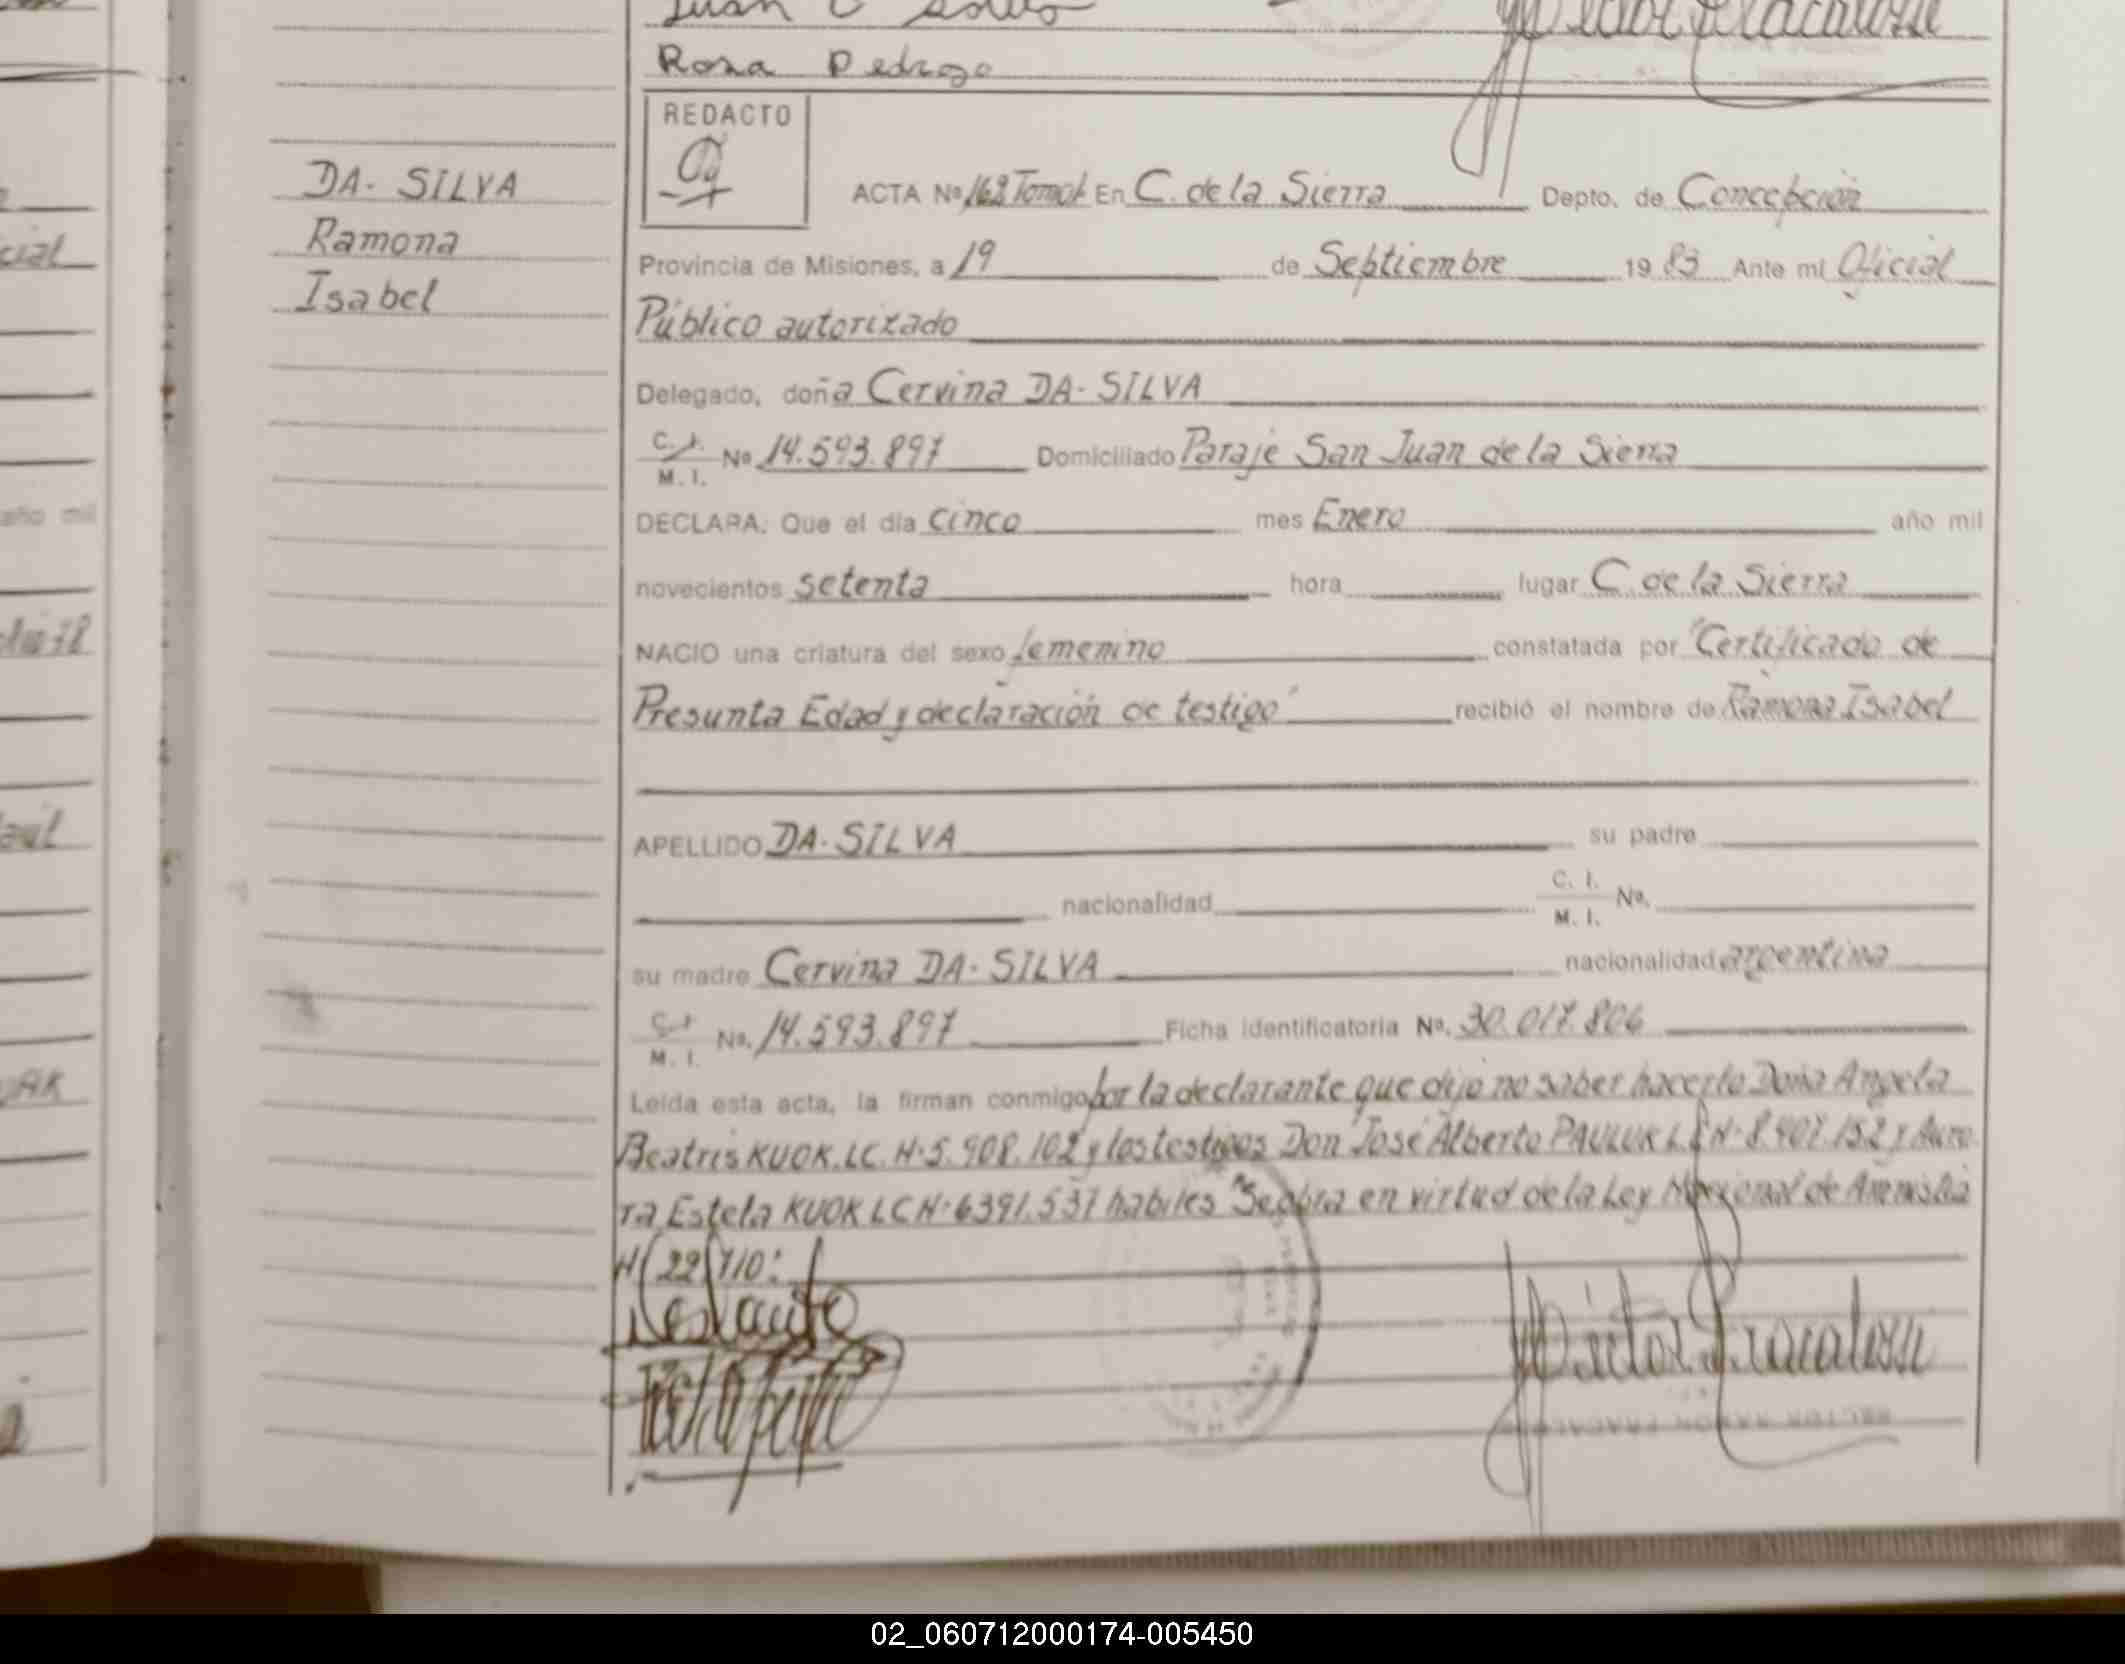 Rosa Pedrozo
REDACTO
DA-SILVA
Ramona
Isabel
ACTA Nº 162 Tomo I En C. de la Sierra Depto. de Concepción
Provincia de Misiones, a 19 de Septiembre 1983 Ante mi Oficial
Público autorizado
Delegado, doña Cervina DA-SILVA
C. I. M. I. Nº 14.593.897 Domiciliado Paraje San Juan de la Sierra
DECLARA: Que el día cinco mes Enero año mil
novecientos setenta hora lugar C. de la Sierra
NACIO una criatura del sexo femenino constatada por "Certificado de
Presunta Edad y declaración de testigo" recibió el nombre de Ramona Isabel
APELLIDO DA-SILVA su padre
nacionalidad C. I. M. I. Nº.
su madre Cervina DA-SILVA nacionalidad argentina
C. I. M. I. Nº. 14.593.897 Ficha identificatoria Nº. 30.017.806
Leída esta acta, la firman conmigo por la declarante que dijo no saber hacerlo Doña Angela
Beatris KUOK. LC. Nº 5.908.102 y los testigos Don José Alberto PAULUK L.E Nº 8.407.152 y Auro
ra Estela KUOK LC Nº 6391.537 habiles "Se obra en virtud de la Ley Nacional de Amnistia
Nº 22.710:
02_060712000174-005450